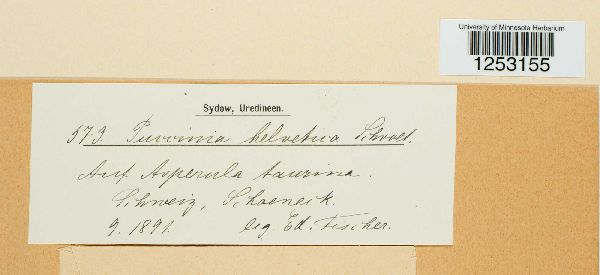 University of Minnesota Herbarium
1253155
Sydow, Uredineen.
573. Puccinia helvetica Schroet.
Auf Asperula taurina.
Schweiz, Schoeneck.
9. 1891. leg Ed. Fischer.